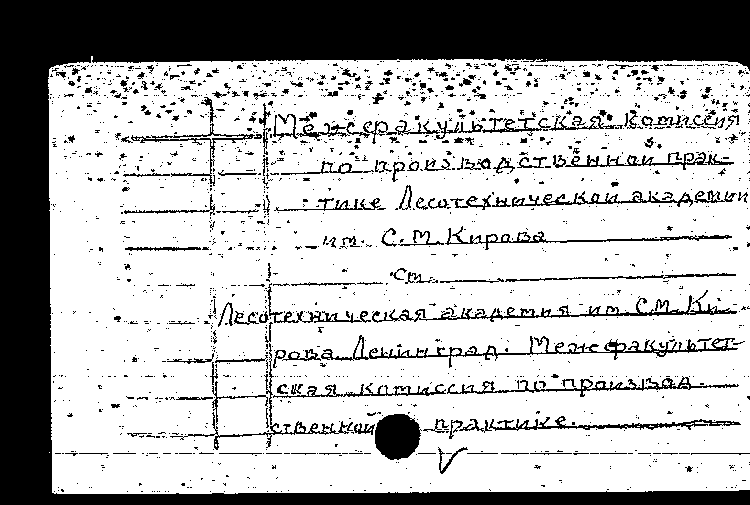 Межфакультетская комиссия
по производственной прак-
тике Лесотехнической академии
им. С.М.Кирова
см.
Лесотехническая академия им. С.М. Ки-
рова. Ленинград. Межфакультет-
ская комиссия по производ-
ственной практике.